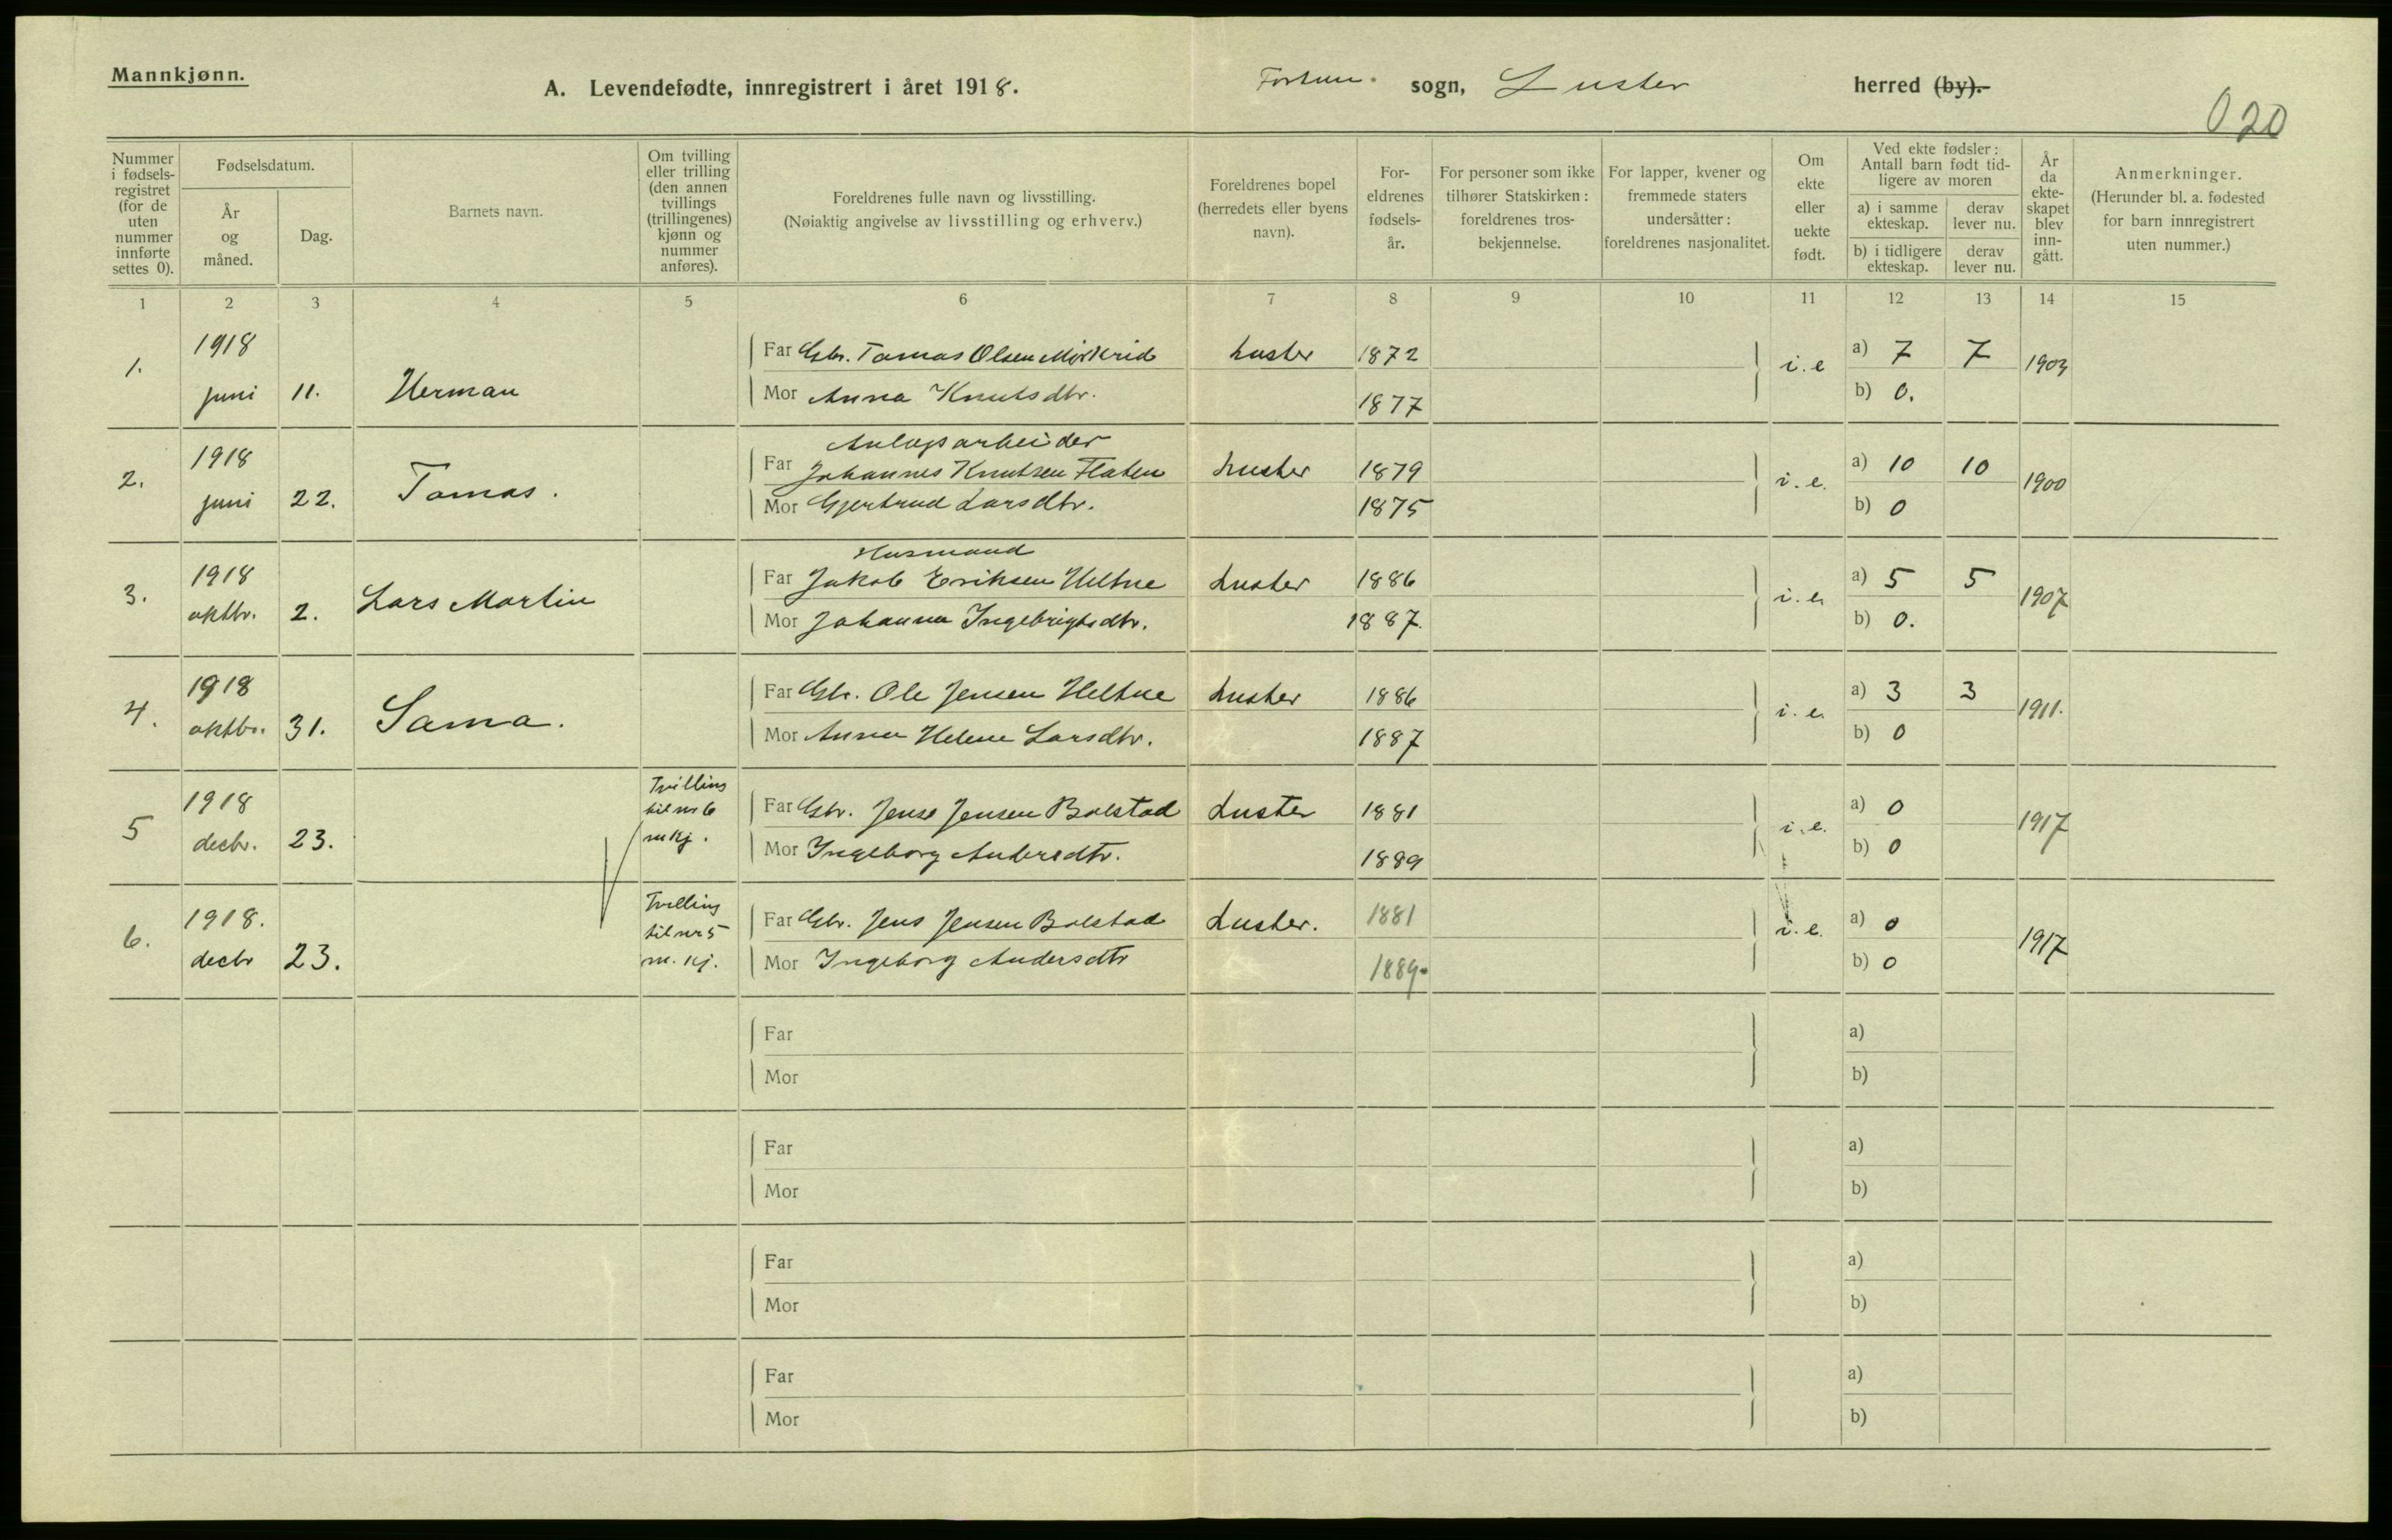 Mannkjønn.
A. Levendefødte, innregistrert i året 1918.
Fortun. sogn, Luster herred (by).
020
Nummer i fødsels-registret (for de uten nummer innførte settes 0).
Fødselsdatum.
År og måned.
Dag.
Barnets navn.
Om tvilling eller trilling (den annen tvillings (trillingenes) kjønn og nummer anføres).
Foreldrenes fulle navn og livsstilling.
(Nøiaktig angivelse av livsstilling og erhverv.)
Foreldrenes bopel (herredets eller byens navn).
For-eldrenes fødsels-år.
For personer som ikke tilhører Statskirken: foreldrenes tros-bekjennelse.
For lapper, kvener og fremmede staters undersåtter: foreldrenes nasjonalitet.
Om ekte eller uekte født.
Ved ekte fødsler: Antall barn født tid-ligere av moren
a) i samme ekteskap.
derav lever nu.
b) i tidligere ekteskap.
derav lever nu.
År da ekte-skapet blev inn-gått.
Anmerkninger.
(Herunder bl. a. fødested for barn innregistrert uten nummer.)
1 2 3 4 5 6 7 8 9 10 11 12 13 14 15
1. 1918 juni 11. Herman
Far Gbr. Tomas Olsen Mørkrid Luster 1872 i.e a) 7 7 1903
Mor Anna Knutsdtr. 1877 b) 0.
2. 1918 juni 22. Tomas.
Anlægsarbeider
Far Johannes Knutsen Flaten Luster 1879 i.e. a) 10 10 1900
Mor Gjertrud Larsdtr. 1875 b) 0
3. 1918 oktbr. 2. Lars Martin
Husmand
Far Jakob Eriksen Heltne Luster 1886 i.e. a) 5 5 1907
Mor Johanna Ingebrigtsdtr. 1887. b) 0.
4. 1918 oktbr. 31. Sama.
Far Gbr. Ole Jensen Heltne Luster 1886 i.e. a) 3 3 1911.
Mor Anna Helene Larsdtr. 1887 b) 0
5 1918 decbr. 23.
Tvilling til nr 6 m.kj.
Far Gbr. Jens Jensen Bolstad Luster 1881 i.e. a) 0 1917
Mor Ingeborg Andersdtr. 1889 b) 0
6. 1918. decbr 23.
Tvilling til nr 5 m. kj.
Far Gbr. Jens Jensen Bolstad Luster. 1881 i.e. a) 0 1917
Mor Ingeborg Andersdtr 1889 b) 0
Far a)
Mor b)
Far a)
Mor b)
Far a)
Mor b)
Far a)
Mor b)